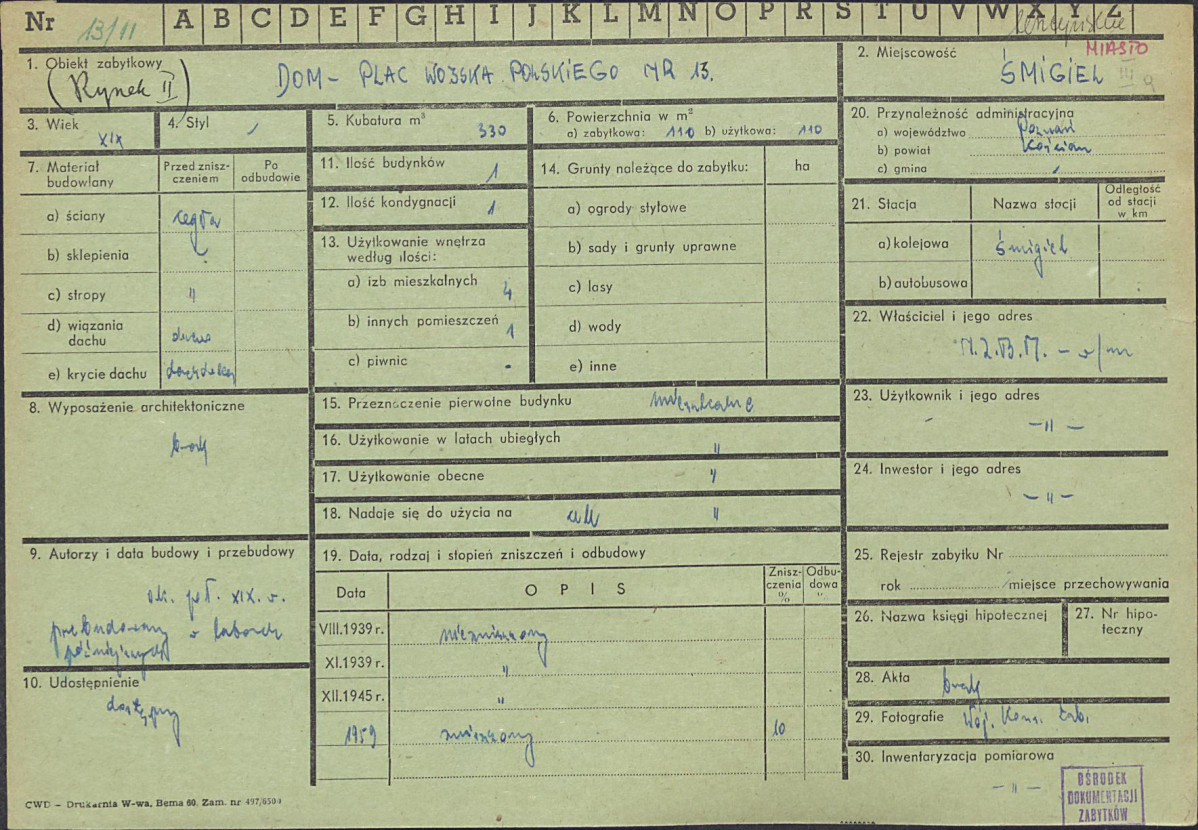 Nr 13/II A B C D E F G H I J K L M N O P R S T U V W X Y Z
MIASTO
1. Obiekt zabytkowy
(Rynek II)
DOM - PLAC WOJSKA POLSKIEGO NR 13.
2. Miejscowość
ŚMIGIEL
3. Wiek
XIX
4. Styl
5. Kubatura m³
330
6. Powierzchnia w m²
a) zabytkowa: 110 b) użytkowa: 110
7. Materiał budowlany
Przed zniszczeniem
Po odbudowie
a) ściany cegła
b) sklepienia
c) stropy "
d) wiązania dachu
e) krycie dachu
8. Wyposażenie architektoniczne
brak
9. Autorzy i data budowy i przebudowy
ok. poł. XIX. w.
przebudowany w latach
późniejszych
10. Udostępnienie
dostępny
11. Ilość budynków 1
12. Ilość kondygnacji 1
13. Użytkowanie wnętrza
według ilości:
a) izb mieszkalnych 4
b) innych pomieszczeń 1
c) piwnic -
14. Grunty należące do zabytku: ha
a) ogrody stylowe
b) sady i grunty uprawne
c) lasy
d) wody
e) inne
15. Przeznaczenie pierwotne budynku mieszkalne
16. Użytkowanie w latach ubiegłych "
17. Użytkowanie obecne "
18. Nadaje się do użycia na cele "
19. Data, rodzaj i stopień zniszczeń i odbudowy
Data
OPIS
Zniszczenia %
Odbudowa "
VIII.1939 r. niezniszczony
XI.1939 r. "
XII.1945 r. "
1959 zniszczony 10
20. Przynależność administracyjna
a) województwo Poznań
b) powiat Kościan
c) gmina
21. Stacja
Nazwa stacji
Odległość od stacji w km
a) kolejowa Śmigiel
b) autobusowa
22. Właściciel i jego adres
M.Z.B.M. - w/m
23. Użytkownik i jego adres
- " -
24. Inwestor i jego adres
- " -
25. Rejestr zabytku Nr
rok miejsce przechowywania
26. Nazwa księgi hipotecznej
27. Nr hipoteczny
28. Akta brak
29. Fotografie Woj. Kons. Zab.
30. Inwentaryzacja pomiarowa
- " -
OŚRODEK
DOKUMENTACJI
ZABYTKÓW
CWD – Drukarnia W-wa, Bema 60. Zam. nr 497/6504